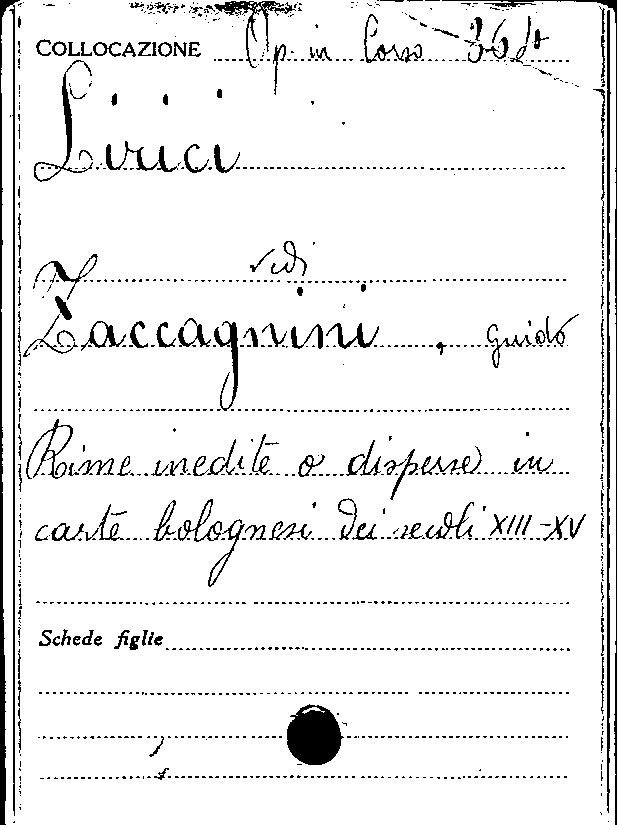 COLLOCAZIONE Op. in Corso 36
Lirici
vedi
Zaccagnini, Guido
Rime inedite o disperse in
carte bolognesi dei secoli XIII-XV
Schede figlie